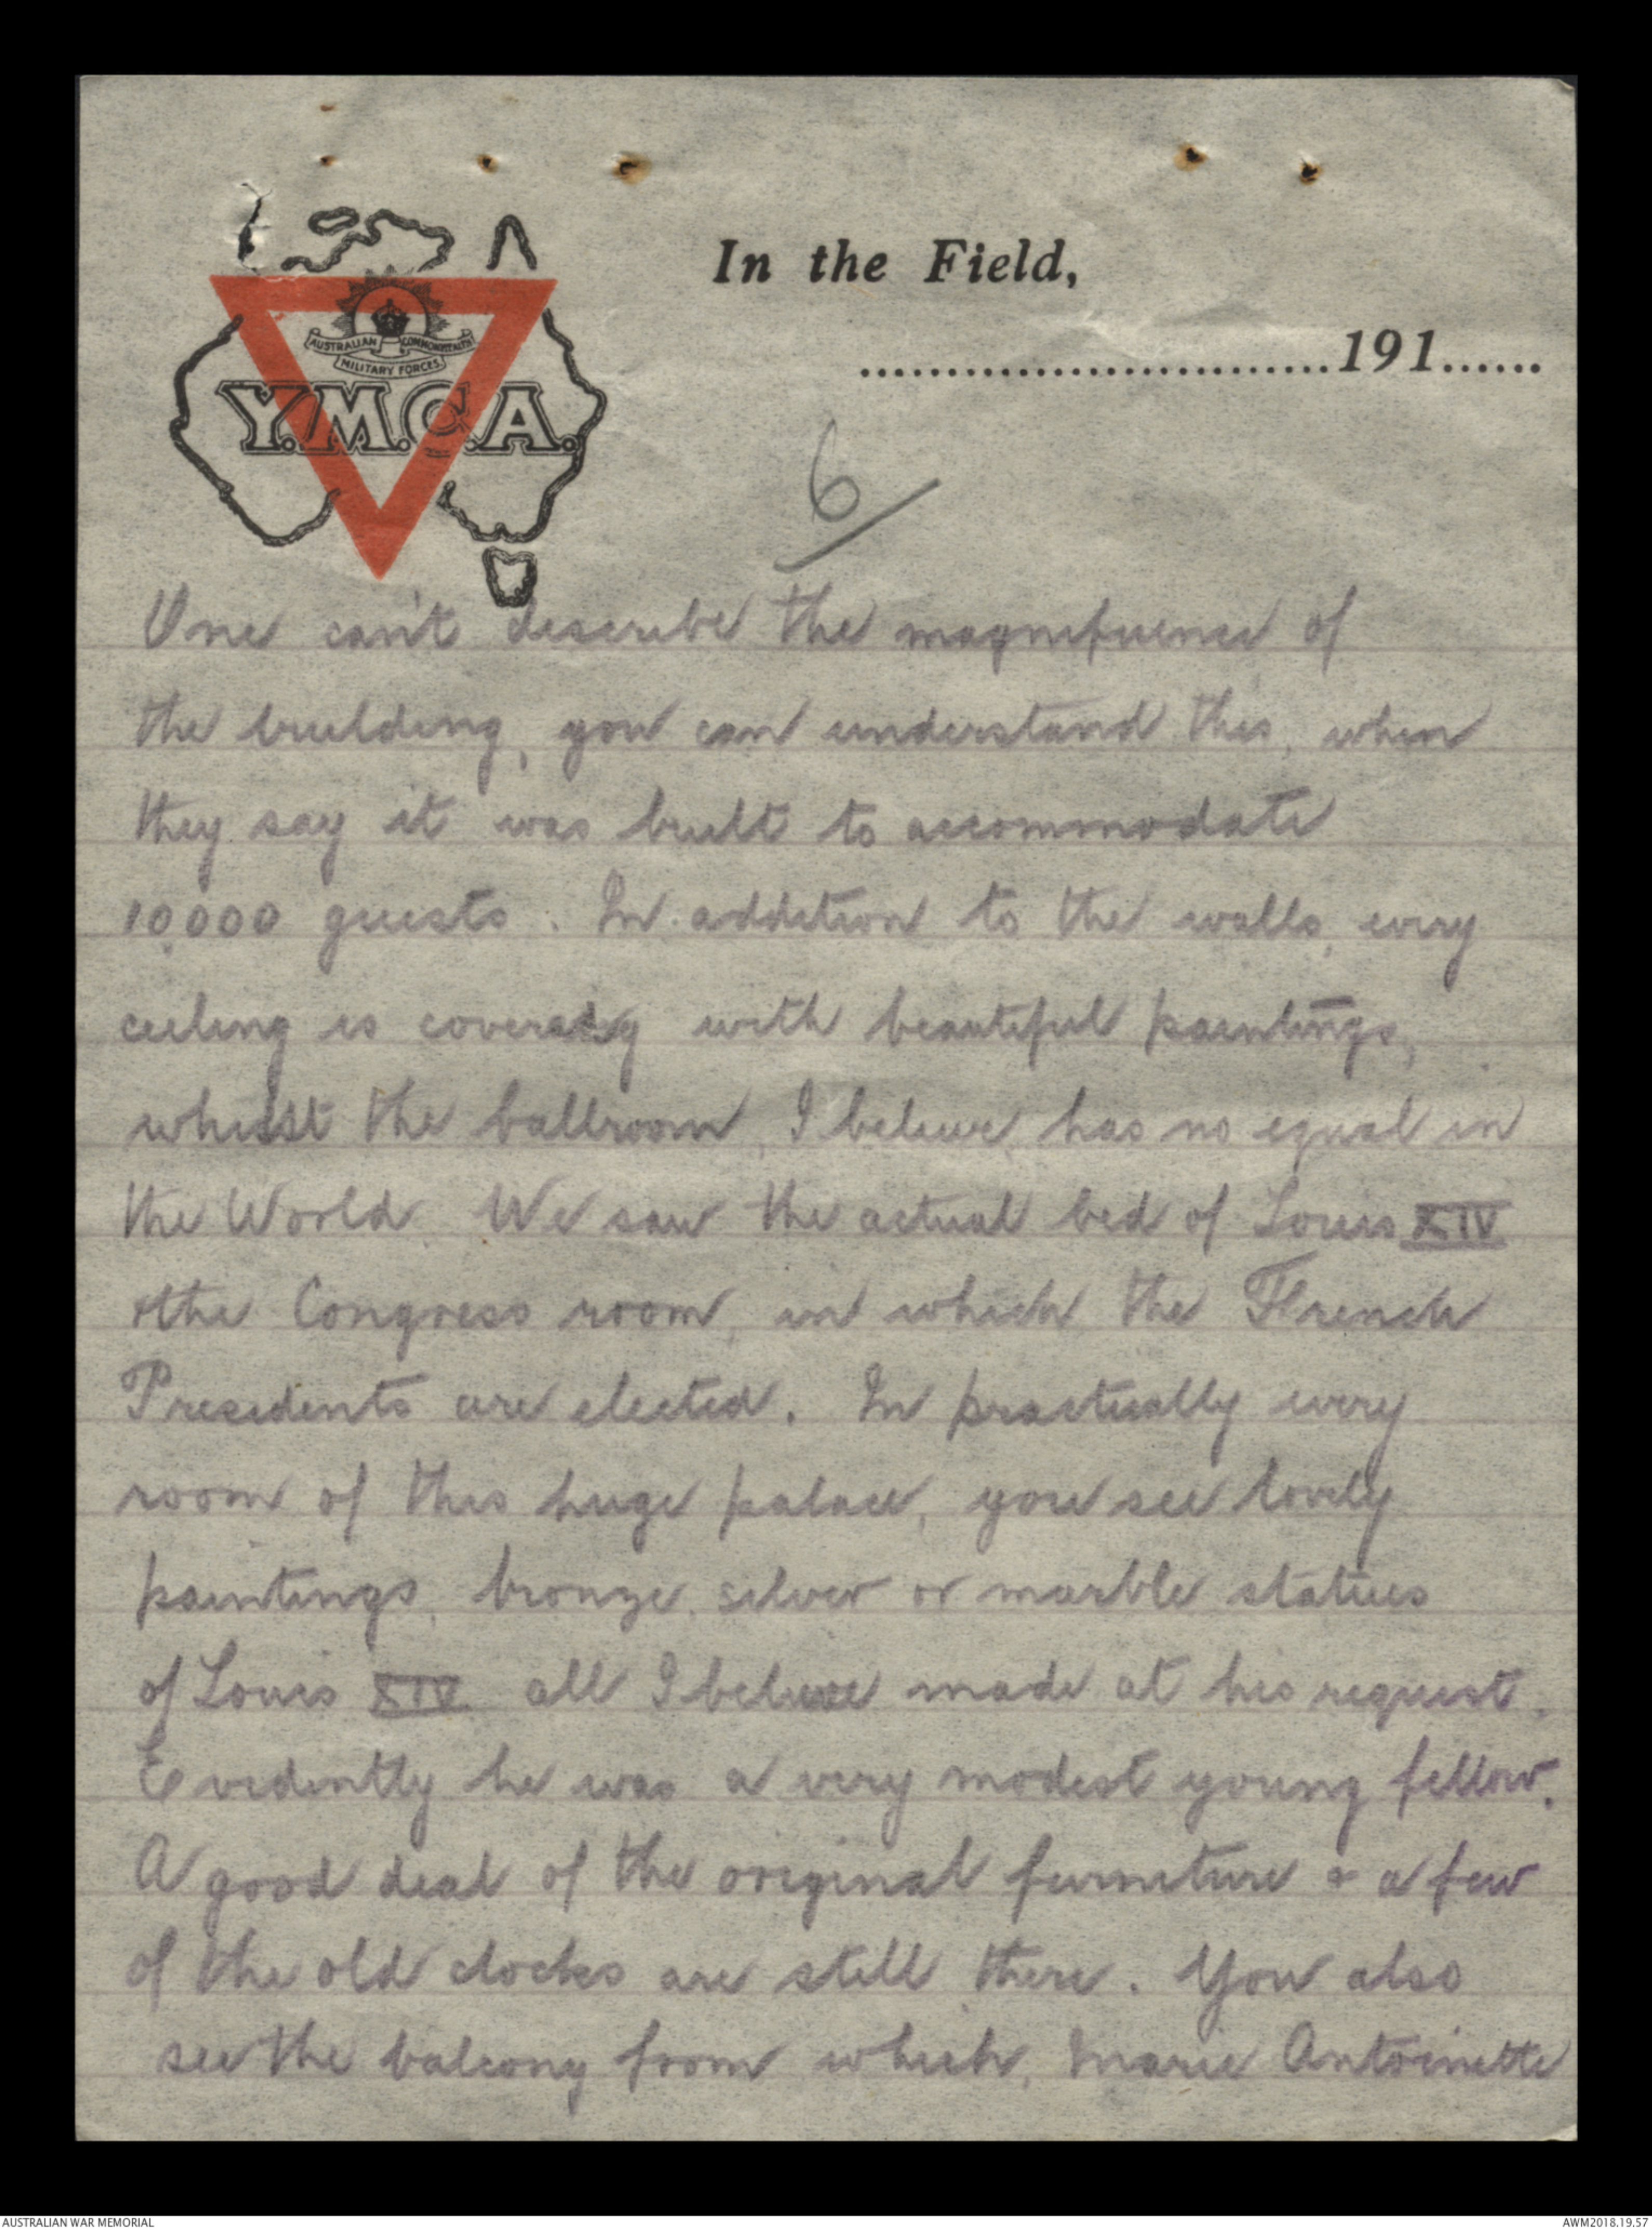 In the Field,
AUSTRALIAN COMMONWEALTH
MILITARY FORCES
..............................191......
Y.M.C.A.
6
One can't describe the magnificence of
the building, you can understand this, when
they say it was built to accommodate
10,000 guests. In addition to the walls, every
ceiling is covered with beautiful paintings,
whilst the ballroom, I believe, has no equal in
the World. We saw the actual bed of Louis XIV
& the Congress room, in which the French
Presidents are elected. In practually every
room of this huge palace, you see lovely
paintings, bronze, silver or marble statues
of Louis XIV all I believe made at his request.
Evidently he was a very modest young fellow.
A good deal of the original furniture & a few
of the old clocks are still there. You also
see the balcony from which, Marie Antoinette
AUSTRALIAN WAR MEMORIAL
AWM2018.19.57